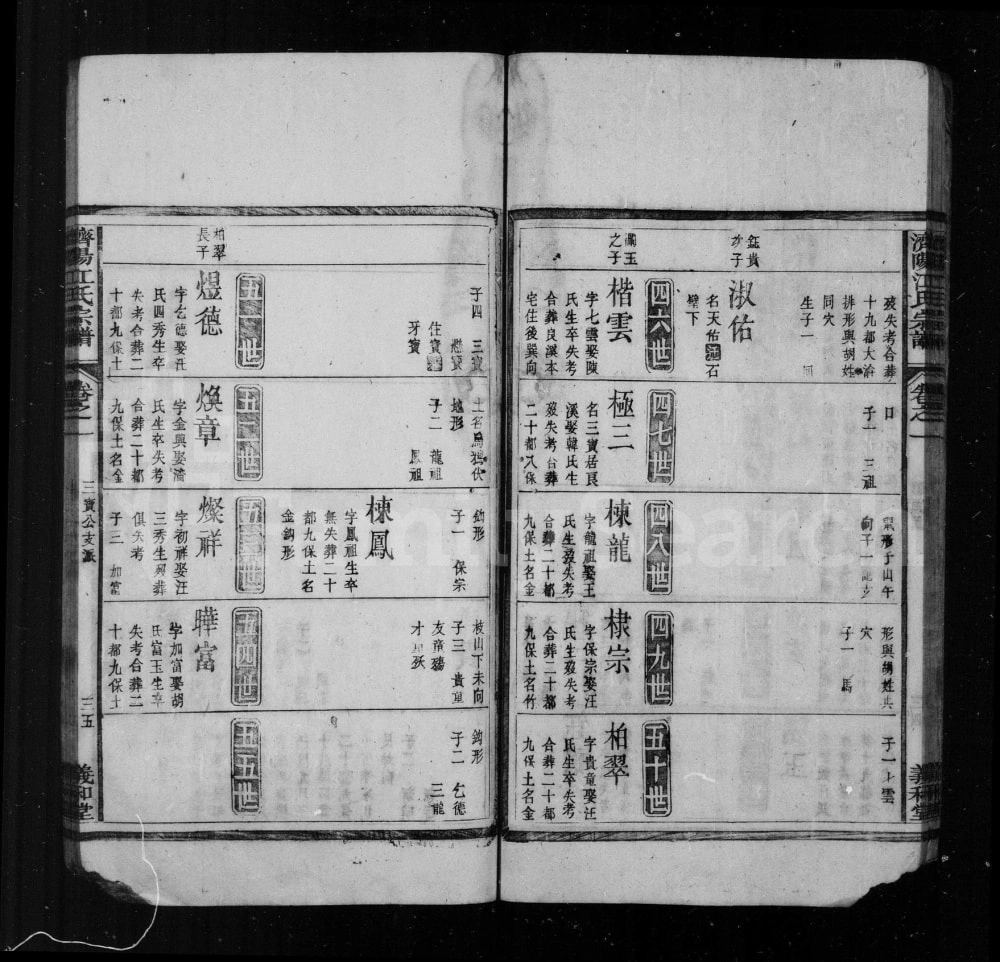 濟陽江氏宗譜
卷之一
義和堂
歿失考合葬
十九都大淪
排形與胡姓
同穴
生子一
鈺貴
次子
淑佑
名天佑
石
壁下
之子
四六世
楷雲
字七雲娶陳
氏生卒失考
合葬良溪本
宅住後巽向
子一
三祖
四七世
極三
名三寶居良
溪娶韓氏生
歿失考合葬
二十都八保
形子山午
向子一
四八世
棟龍
字龍祖娶王
氏生歿失考
合葬二十都
九保土名金
形與胡姓共
穴
子一
馬
四九世
棣宗
字保宗娶汪
氏生歿失考
合葬二十都
九保土名竹
子一
雲
五十世
柏翠
字貴童娶汪
氏生卒失考
合葬二十都
九保土名金
子四
三寶
住寶
牙寶
五一世
柏翠
長子
煜德
字乞德娶汪
氏四秀生卒
失考合葬二
十都九保土
子二
龍祖
鳳祖
五二世
煥章
字金興娶潘
氏生卒失考
合葬二十都
九保土名金
鈎形
子一
保宗
棟鳳
字鳳祖生卒
無失葬二十
都九保土名
金鈎形
五三世
燦祥
字初祥娶汪
三秀生歿葬
俱失考
子三
加富
枝山下未向
子三
貴童
五四世
曄富
字加富娶胡
氏富玉生卒
失考合葬二
十都九保土
鈎形
子二
乞德
三龍
五五世
濟陽江氏宗譜
卷之一
三寶公支派
三五
義和堂